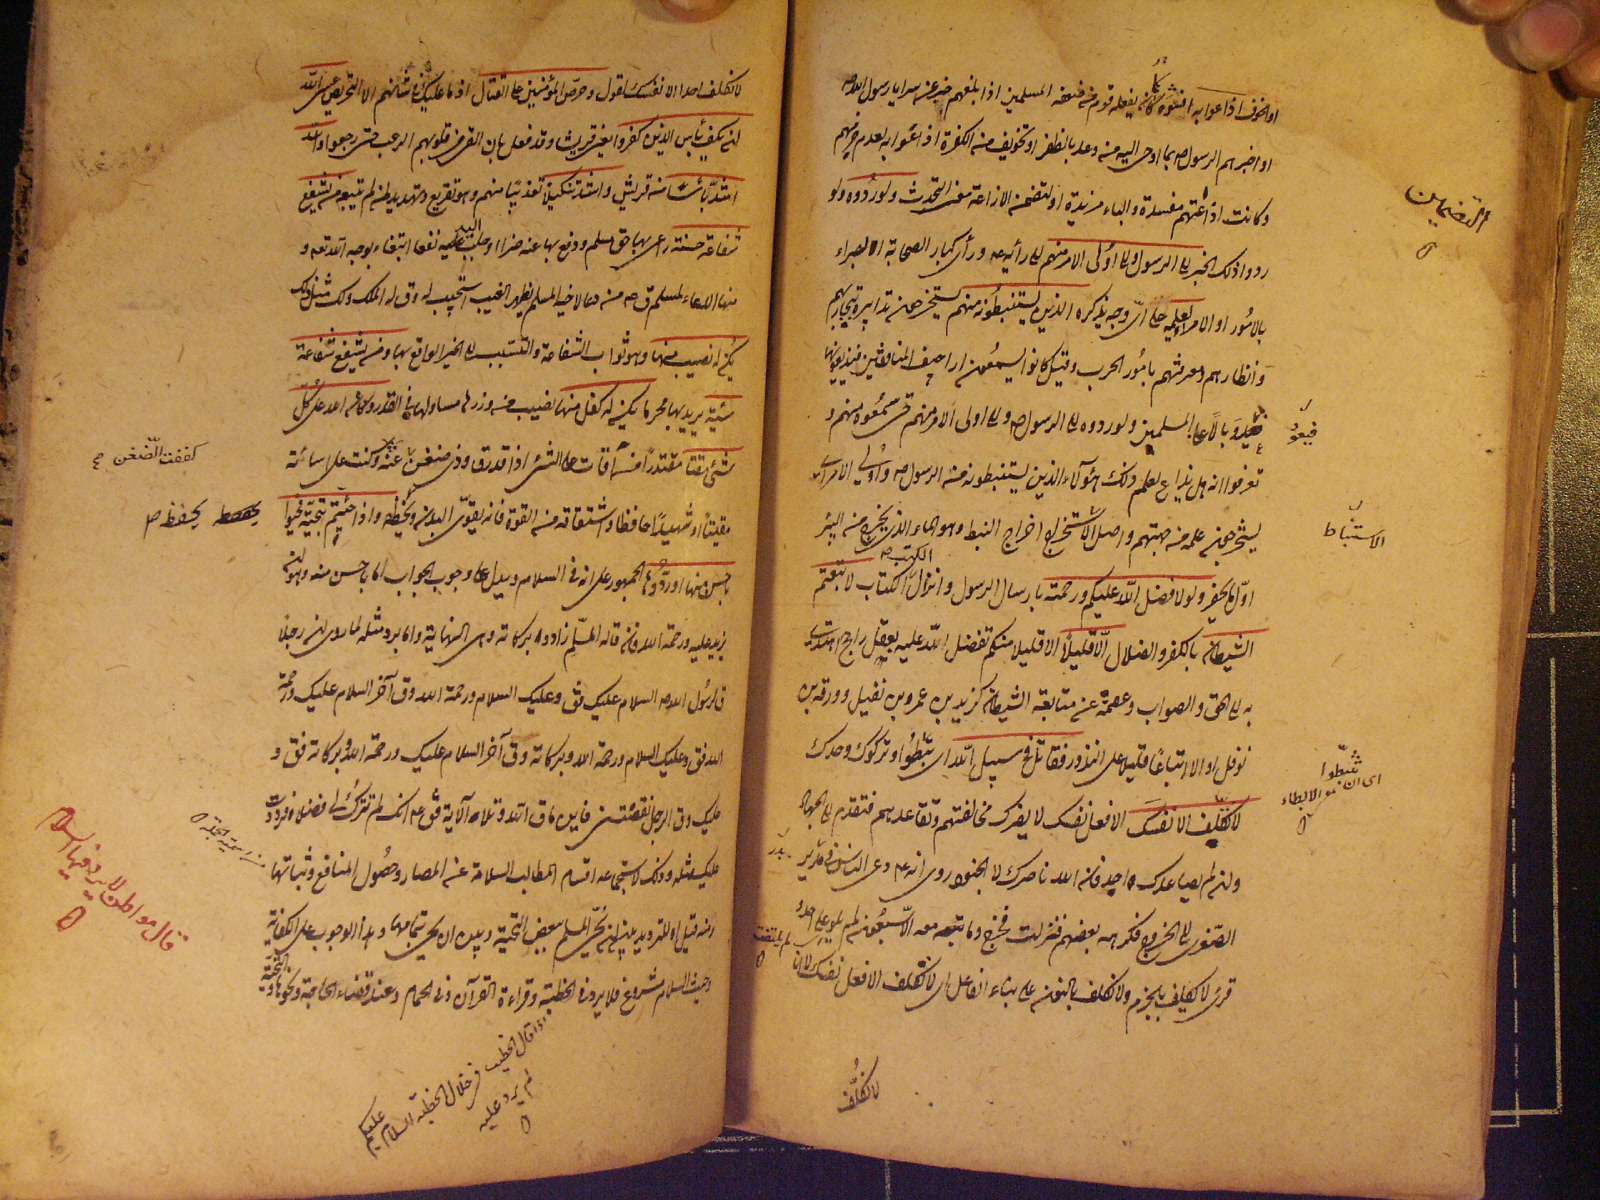 او الخوف اذاعوا به افشوه كما كان يفعله قوم من ضعفة المسلمين اذا بلغهم خبر عن سرايا رسول الله ص
او اخبرهم الرسول ص بما اوحى اليه من وعد بالظفر او تخويف من الكفرة اذاعوا به لعدم حزمهم
وكانت اذاعتهم مفسدة والباء مزيدة او لتضمن الاذاعة معنى التحدث ولو ردوه ولو
ردوا ذلك الخبر الى الرسول والى اولى الامر منهم الى رأيه عم ورأى كبار الصحابة البصراء
بالامور او الامراء لعلمه على اى وجه يذكره الذين يستنبطونه منهم يستخرجون تدابيره بتجاربهم
وأنظارهم ومعرفتهم بامور الحرب وقيل كانوا يسمعون اراجيف المنافقين فيذيعونها
فيعود وبالا على المسلمين ولو ردوه الى الرسول ص والى اولى الامر منهم حتى سمعوه منهم و
تعرفوا انه هل يذاع لعلم ذلك هؤلاء الذين يستنبطونه من الرسول ص واولى الامر اى
يستخرجون علمه من جهتهم واصل الاستخراج اخراج النبط وهو الماء الذى يخرج من البئر
اول ما يحفر ولولا فضل الله عليكم ورحمته بارسال الرسول وانزال الكتاب لاتبعتم
الشيطان بالكفر والضلال الا قليلا الا قليلا منكم تفضل الله عليه بعقل راجح اهتدى
به الى الحق والصواب وعصمه عن متابعة الشيطان كزيد بن عمرو بن نفيل وورقة بن
نوفل او الا اتباعا قليلا على الندور فقاتل فى سبيل الله ان تثبطوا وتركوك وحدك
لا تكلف الا نفسك الا فعل نفسك لا يضرك مخالفتهم وتقاعدهم فتقدم الى الجهاد
وان لم يساعدك احد فان الله ناصرك لا الجنود روى انه عم دعى الناس فى بدر
الصغرى الى الخروج فكرهه بعضهم فنزلت فخرج وما تبعه معه الا سبعون لم يلو على احد و
قرئ لا تكلف بالجزم ولا نكلف بالنون على بناء الفاعل اى لا نكلفك الا فعل نفسك لا انا
التضمين
فيعود
الاستنباط
اى ان تثبطوا
من الابطاء
لم يلتفت
لا نكلف
لا نكلف احدا الا نفسك لقوله وحرض المؤمنين على القتال اذ ما عليك فى شأنهم الا التحريض عسى الله
ان يكف بأس الذين كفروا يعنى قريشا وقد فعل بان القى فى قلوبهم الرعب حتى رجعوا والله
اشد بأسا من قريش واشد تنكيلا تعذيبا منهم وهو تقريع وتهديد لمن لم يتبعه من يشفع
شفاعة حسنة راعى بها حق مسلم ودفع بها عنه ضرا او جلب اليه نفعا ابتغاء لوجه الله تعالى و
منها الدعاء لمسلم ق عم من دعا لاخيه المسلم بظهر الغيب استجيب له وق له الملك ولك مثل ذلك
يكن له نصيب منها وهو ثواب الشفاعة والتسبب الى الخير الواقع بها ومن يشفع شفاعة
سيئة يريد بها محرما يكن له كفل منها نصيب من وزرها مساو لها فى القدر وكان الله على كل
شئ مقيتا مقتدرا من اقات على الشئ اذا قدر ق وذى ضغن كففت الضغن عنه وكنت على اساءته
مقيتا او شهيدا حافظا واشتقاقه من القوت فانه يقوى البدن ويحفظه واذا حييتم بتحية فحيوا
باحسن منها او ردوها الجمهور على انه فى السلام ويدل على وجوب الجواب اما باحسن منه وهو ان
يزيد عليه ورحمة الله فان قاله المسلم زاد وبركاته وهى النهاية واما برد مثله لما روى ان رجلا
ق لرسول الله ص السلام عليك فق وعليك السلام ورحمة الله وق آخر السلام عليك ورحمة
الله فق وعليك السلام ورحمة الله وبركاته وق آخر السلام عليك ورحمة الله وبركاته فق و
عليك وق الرجل نقصتنى فاين ما ق الله وتلا الآية فق عم انك لم تترك لى فضلا فرددت
عليك مثله وذلك لاستجماعه اقسام المطالب السلامة عن المضار وحصول المنافع وثباتها
ومنه قيل او للترديد بين ان يحيى المسلم ببعض التحية وبين ان يحيى بتمامها وهذا الوجوب على الكفاية
وحيث السلام مشروع فلا يرد فى الخطبة وقراءة القرآن وفى الحمام وعند قضاء الحاجة ونحوها والتحية
كففت الضغن
يحفظ ص
قال مواطن لا يرد فيها السلام
اذا قال الخطيب فى خلال الخطبة السلام عليكم
لم يرد عليه